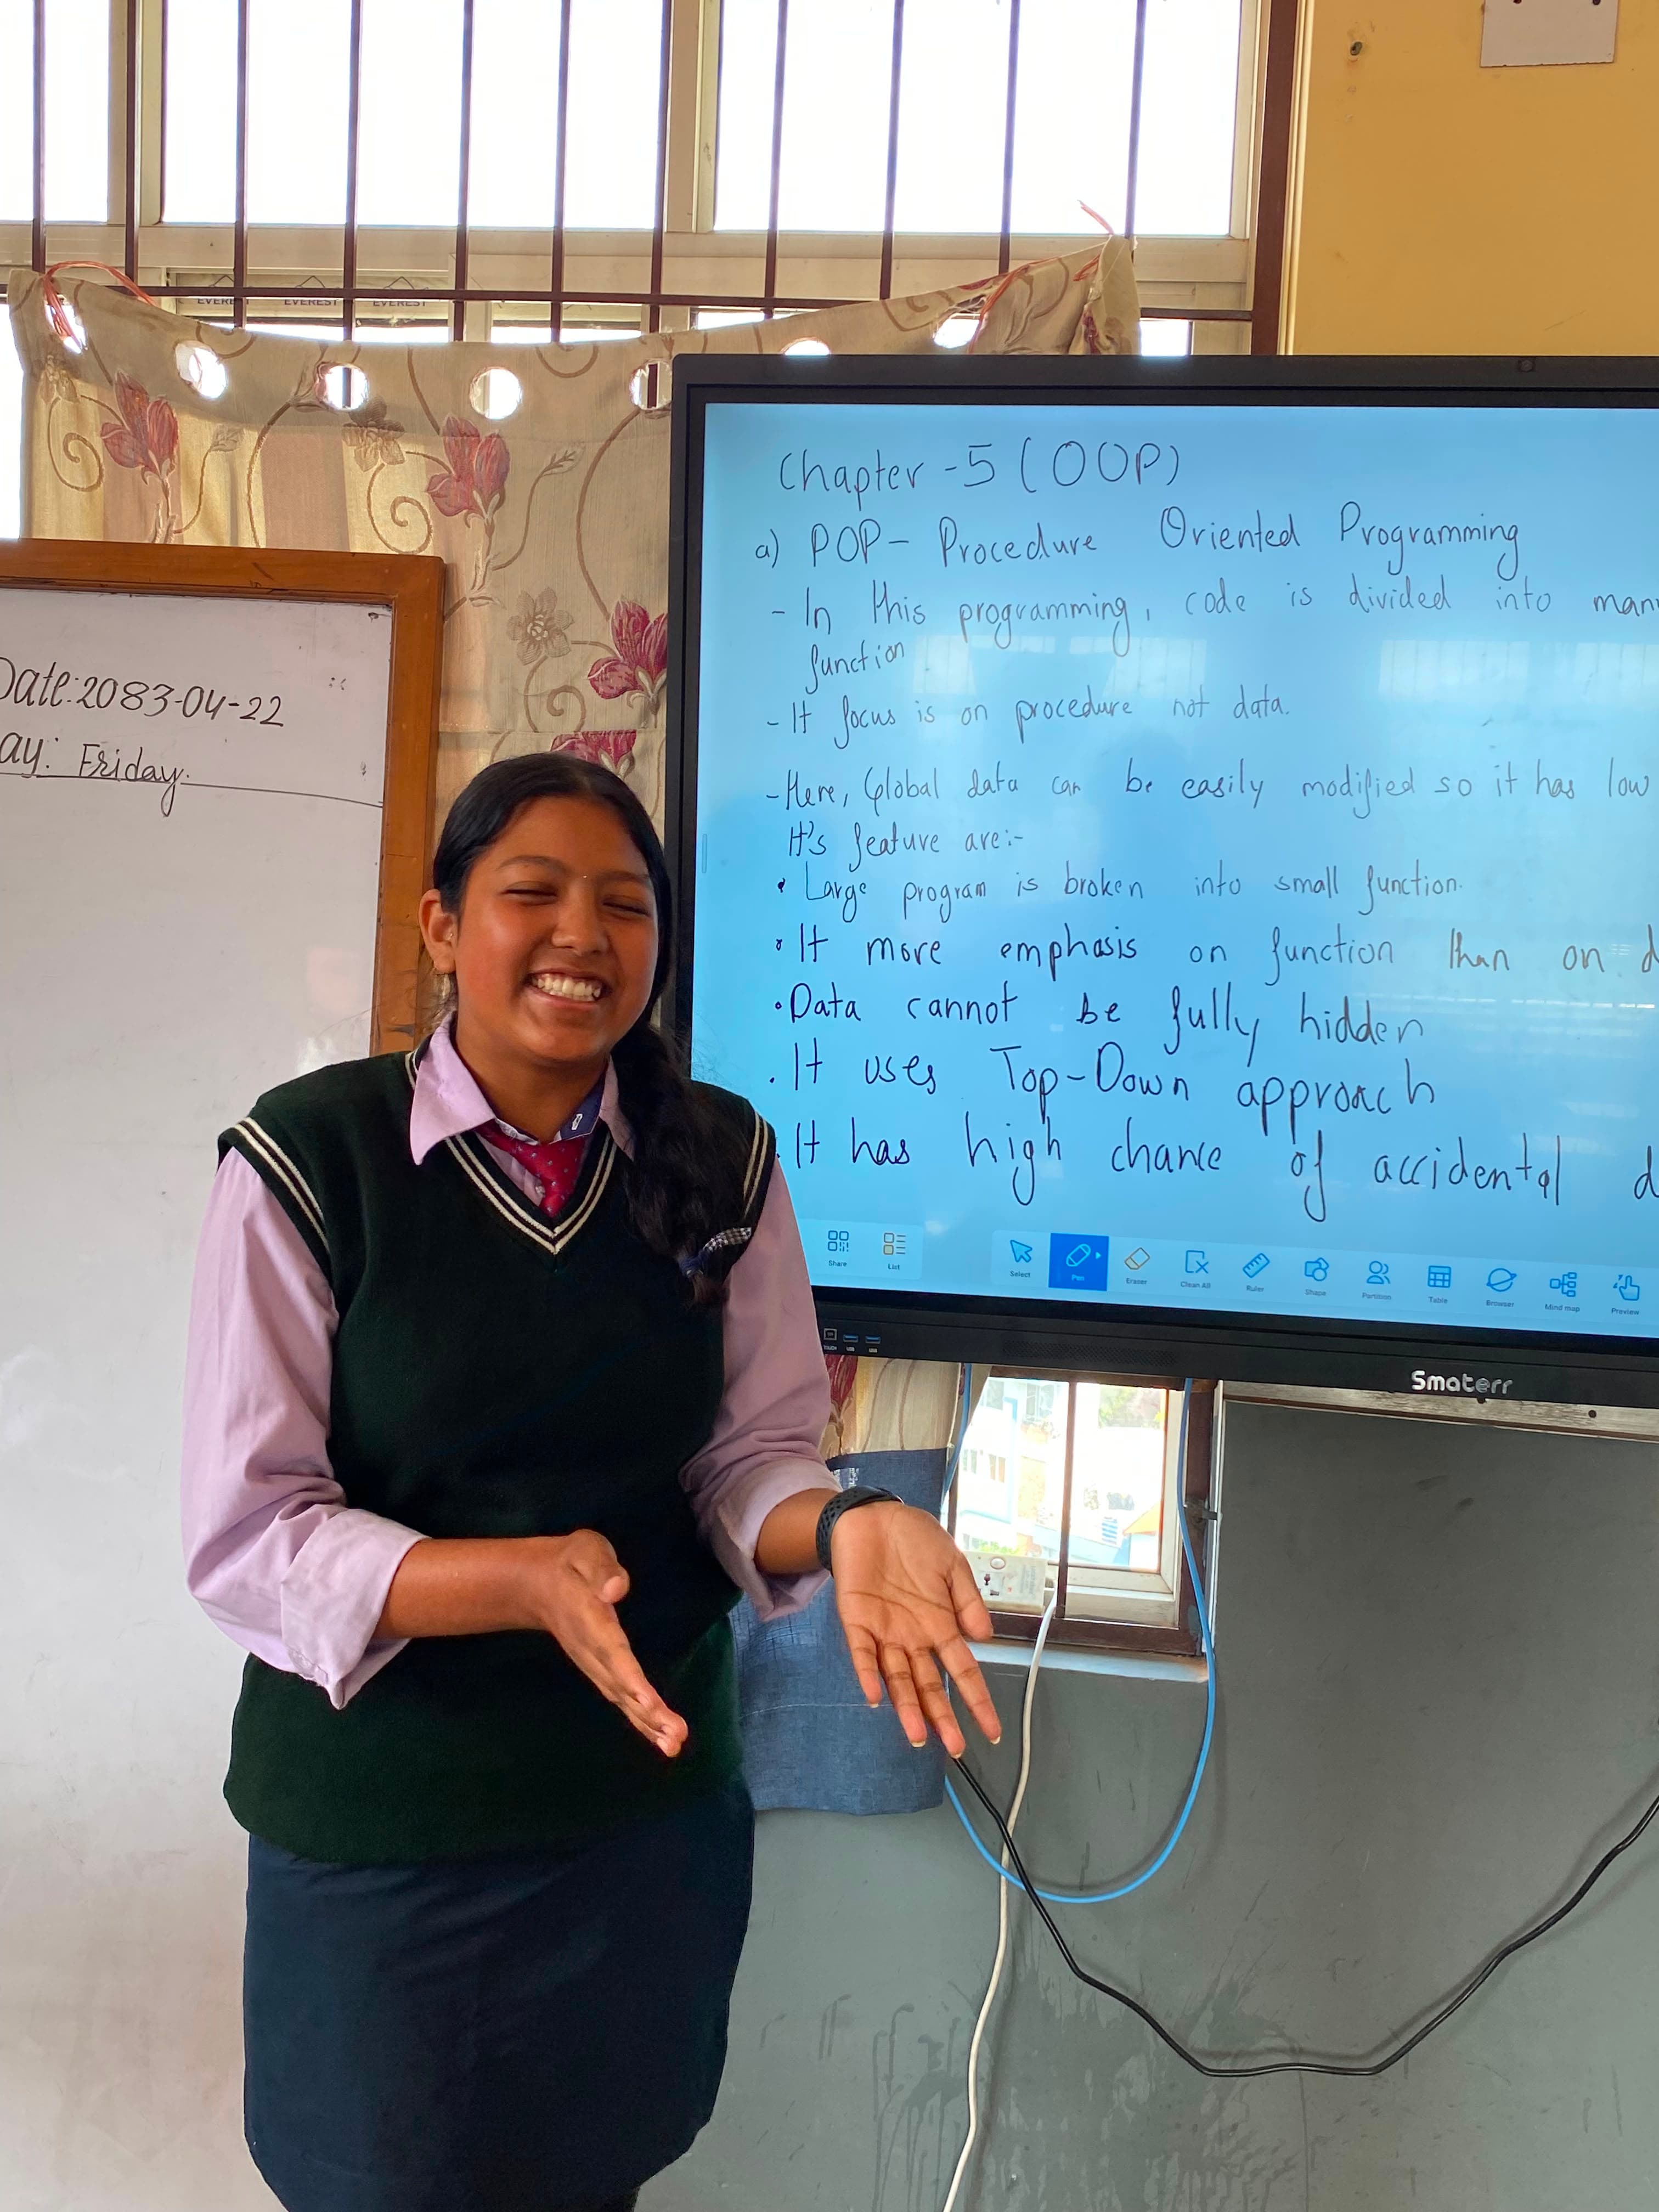 EVEREST EVEREST EVEREST
Date: 2083-04-22
ay: Friday.
Chapter - 5 (OOP)
a) POP - Procedure Oriented Programming
- In this programming, code is divided into man
function
- It focus is on procedure not data.
- Here, Global data can be easily modified so it has low
It's feature are:-
• Large program is broken into small function.
• It more emphasis on function than on d
• Data cannot be fully hidden
. It uses Top-Down approach
. It has high chance of accidental d
Share List Select Pen Eraser Clean All Ruler Shape Partition Table Browser Mind map Preview
TOUCH USB USB
Smaterr